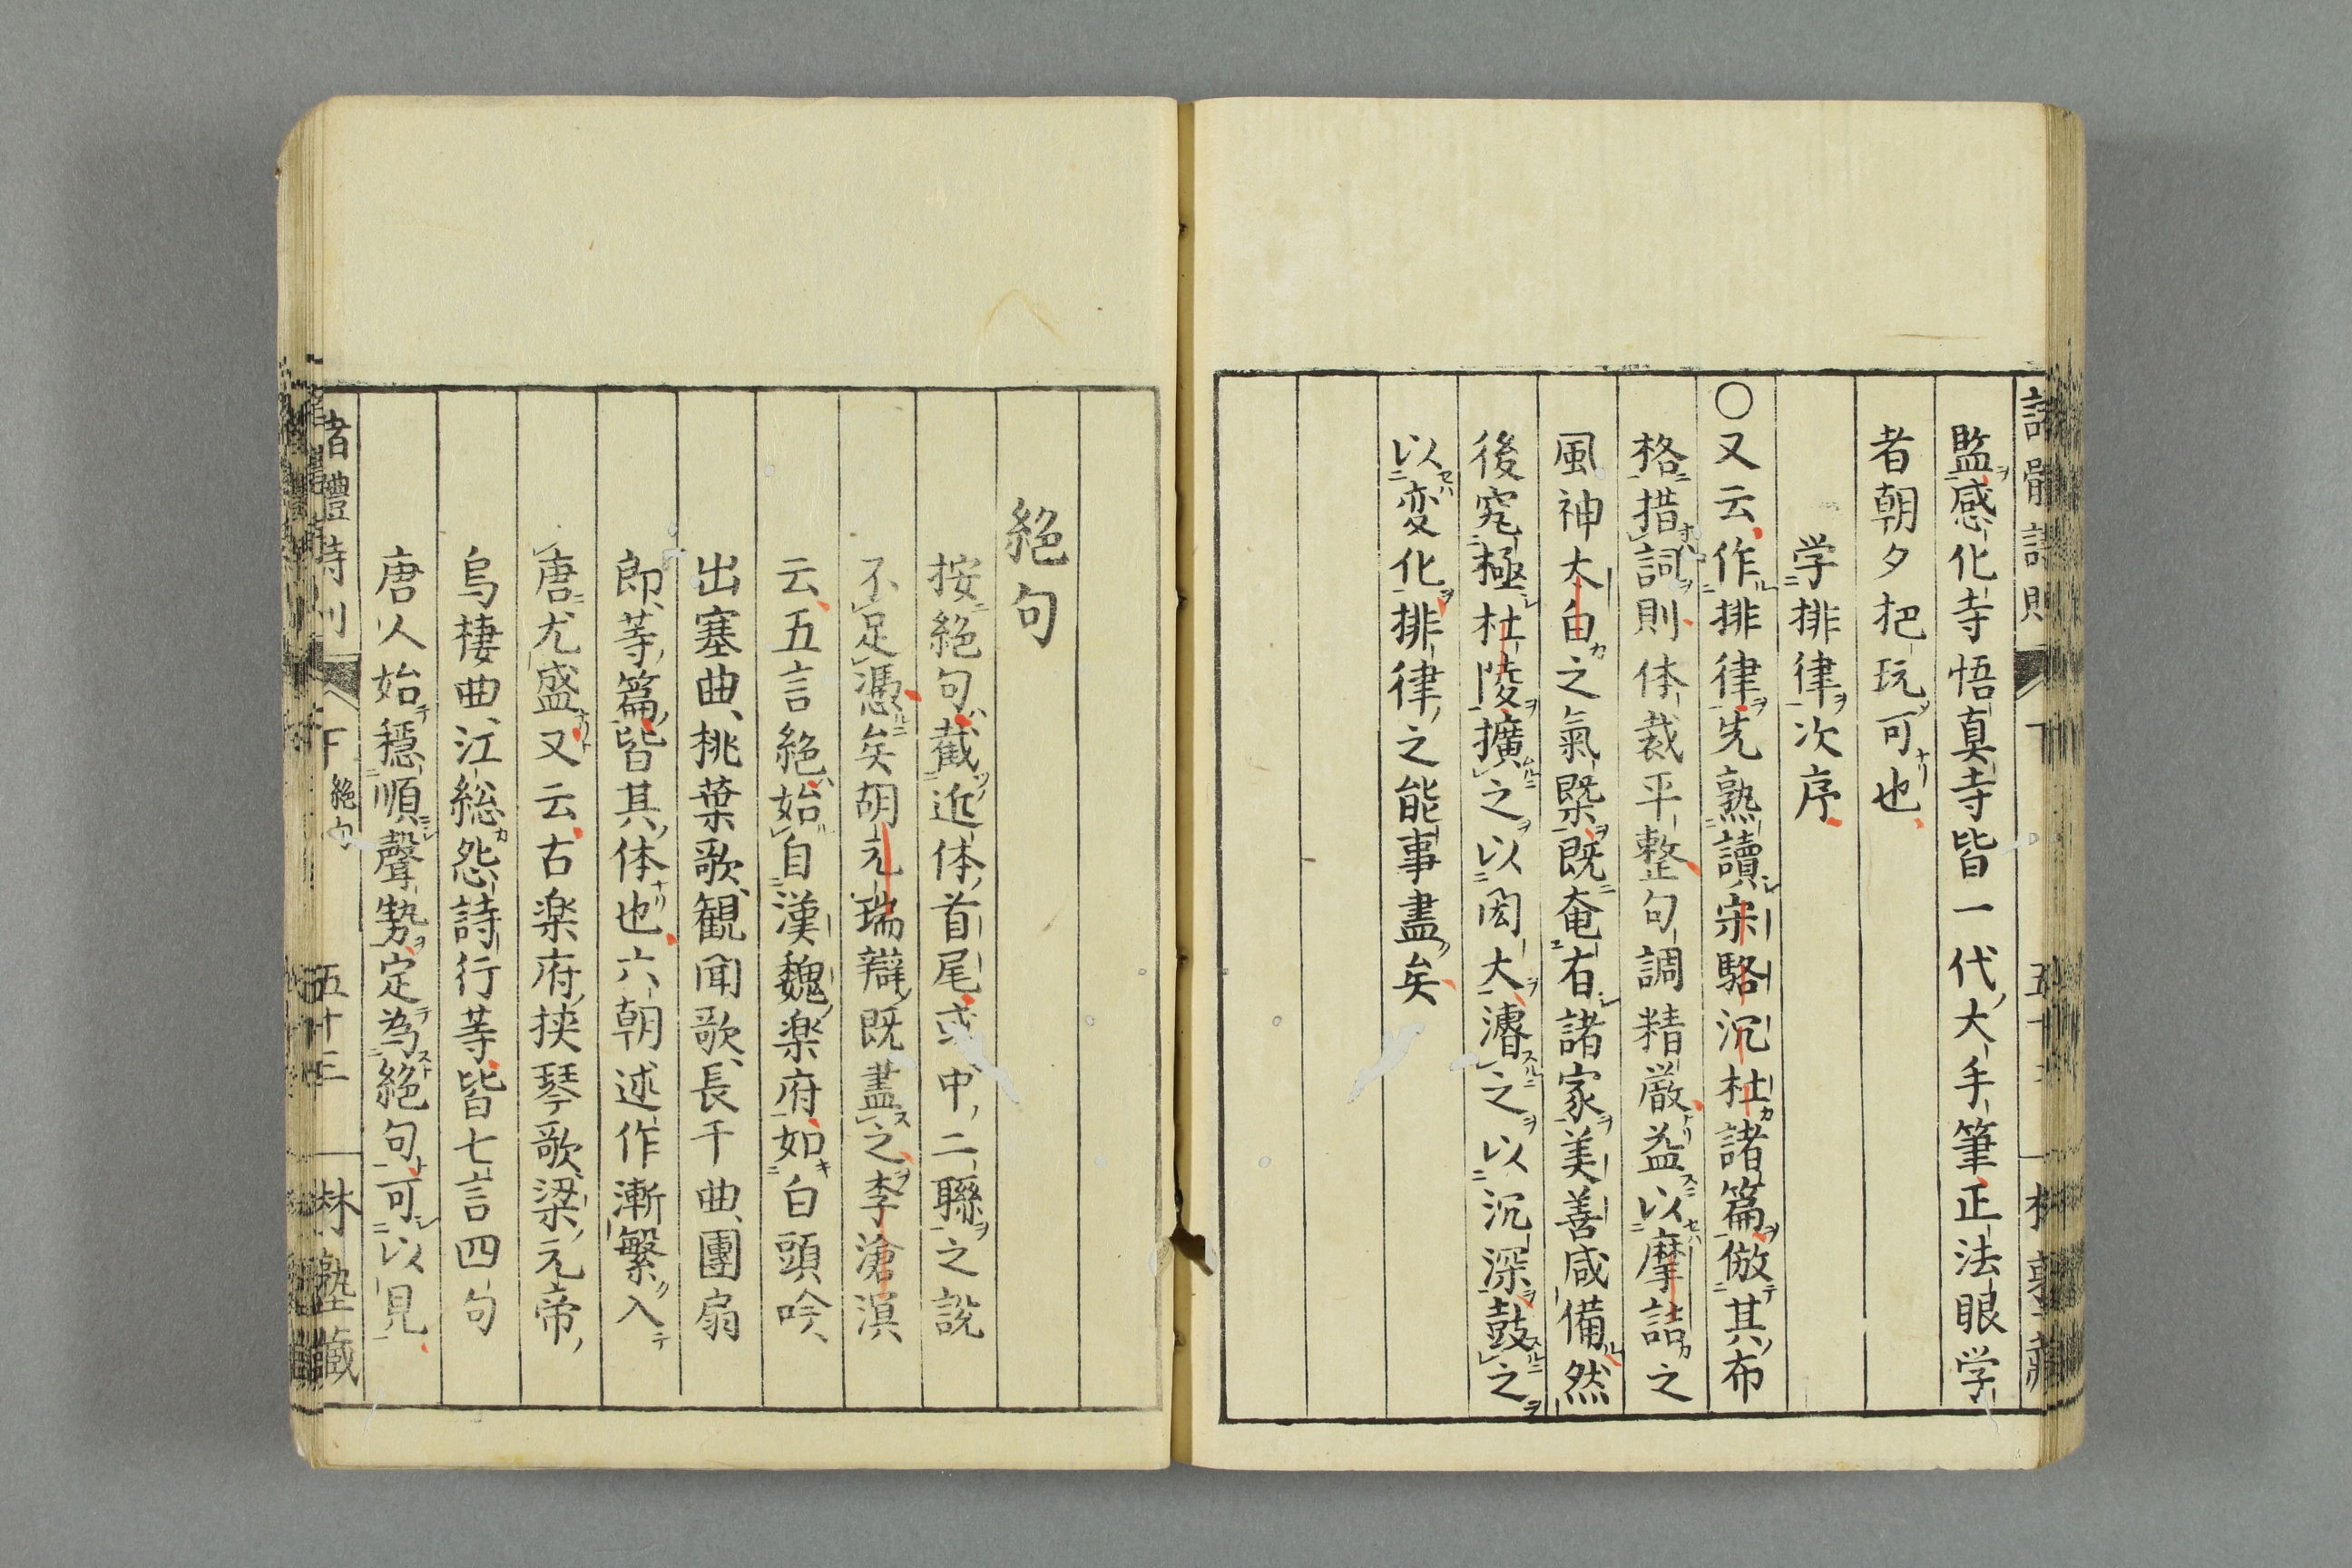 監感化寺悟真寺皆一代大手筆正法眼学
者朝夕把玩可也
学排律次序
〇又云作排律先熟讀宋駱沉杜諸篇倣其布
格措詞則体裁平整句調精厳益以摩詰之
風神太白之氣槩既奄有諸家美善咸備然
後究極杜陵擴之以閎大濬之以沉深鼓之
以変化排律之能事盡矣
絶句
按絶句截近体首尾或中二聯之説
不足憑矣胡元瑞辯既盡之李滄溟
云五言絶始自漢魏楽府如白頭吟
出塞曲桃葉歌観聞歌長干曲團扇
郎等篇皆其体也六朝述作漸繁入
唐尤盛又云古楽府挟琴歌梁元帝
烏棲曲江総怨詩行等皆七言四句
唐人始穏順聲勢定為絶句可以見
諸體詩則 下 絶句 五十三 林塾藏